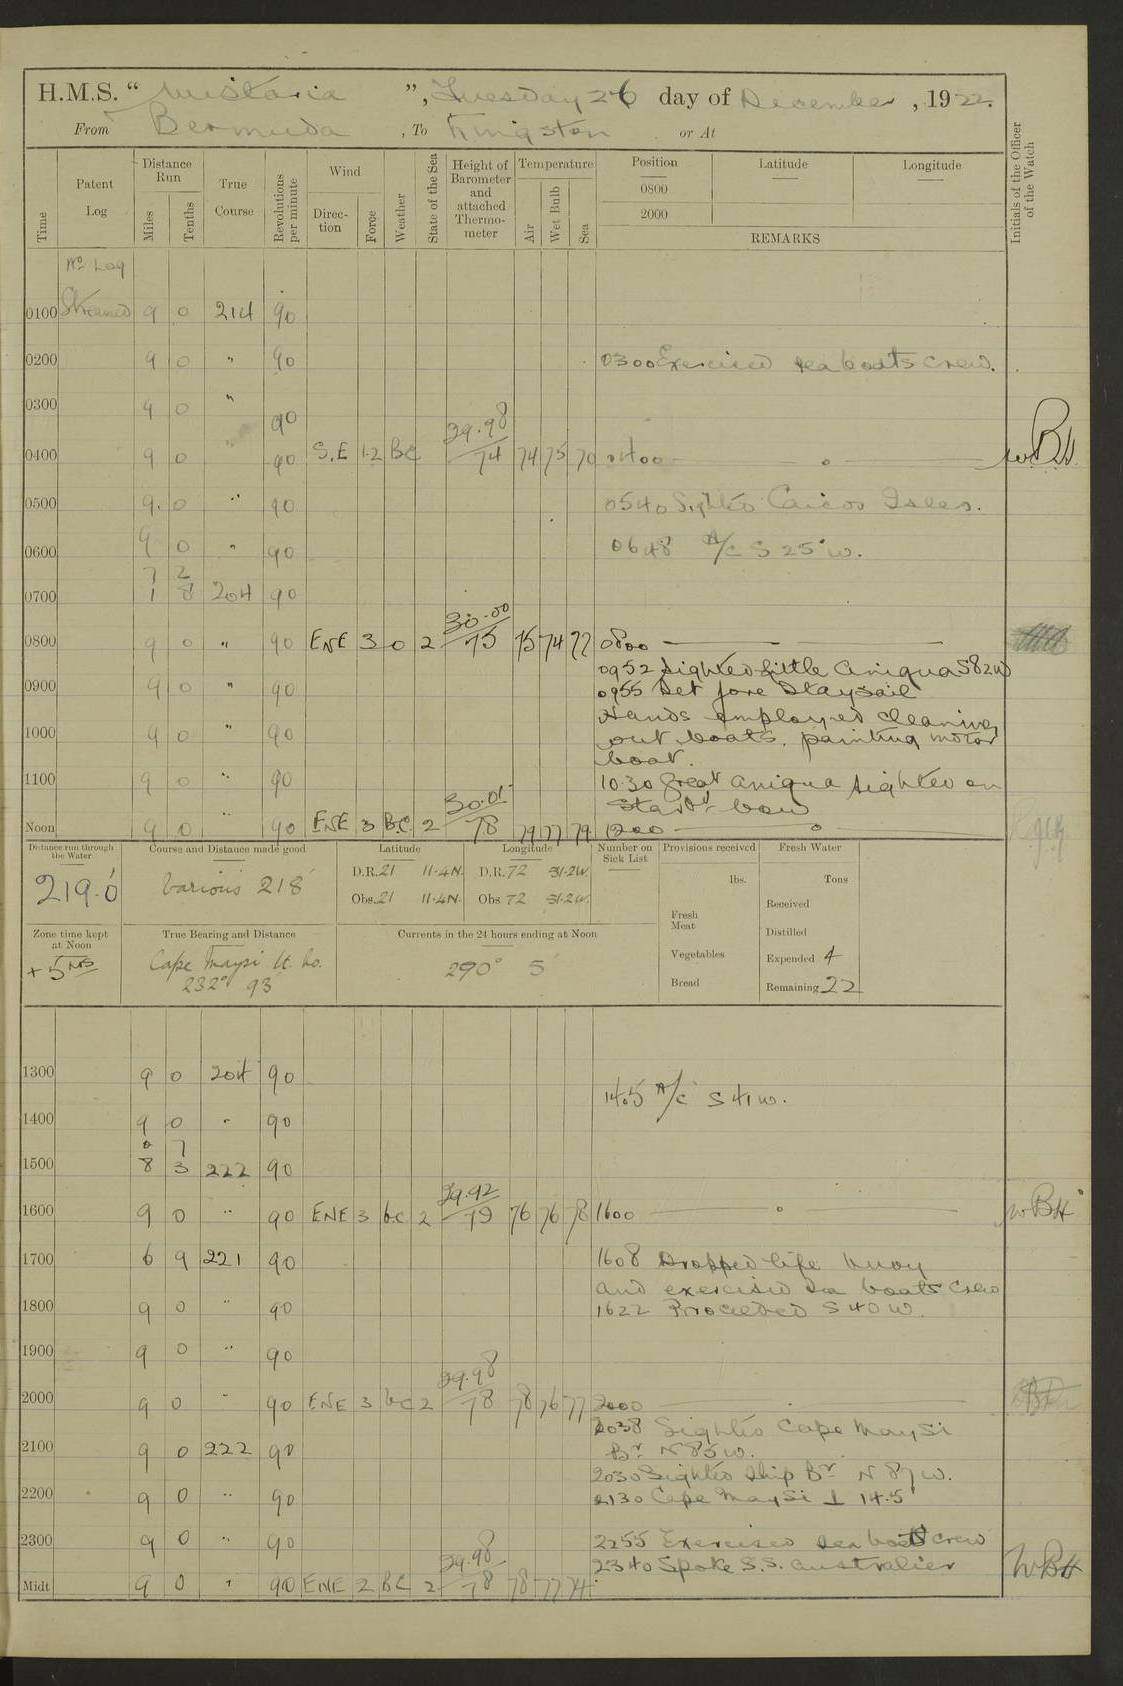 H.M.S. “ Wistaria ”, Tuesday 26 day of December, 1922.
From Bermuda, To Kingston or At
Time
Patent Log
Distance Run
Miles
Tenths
True Course
Revolutions per minute
Wind
Direction
Force
Weather
State of the Sea
Height of Barometer and attached Thermometer
Temperature
Air
Wet Bulb
Sea
Position
Latitude
Longitude
0800
2000
REMARKS
Initials of the Officer of the Watch
No Log
0100 Streamed 9 0 214 90
0200 9 0 " 90 0300 Exercised sea boats crew.
0300 9 0 " 90
29.98
0400 9 0 " 90 S.E 1.2 BC 74 74 75 70 0400 WBH
0500 9. 0 " 90 0540 Sighted Caicos Isles.
0600 9 0 " 90 0648 A/c S 25° W.
7 2
0700 1 8 204 90
30.00
0800 9 0 " 90 ENE 3 0 2 75 75 74 77 0800
0952 Sighted Little Aniqua S82W
0900 9 0 " 90 0955 Set fore staysail
Hands employed cleaning
1000 9 0 " 90 out boats, painting motor
boat.
1100 9 0 " 90 10.30 Great Aniqua sighted on
Starbd bow
30.01
Noon 9 0 " 90 ENE 3 BC 2 78 79 77 79 1200
Distance run through the Water
219.0
Course and Distance made good
Various 218
Latitude
D.R. 21 11.4N.
Obs. 21 11.4N.
Longitude
D.R. 72 51.2W.
Obs 72 51.2W.
Number on Sick List
Provisions received
lbs.
Fresh Meat
Vegetables
Bread
Fresh Water
Tons
Received
Distilled
Expended 4
Remaining 22
Zone time kept at Noon
+ 5 hrs
True Bearing and Distance
Cape Maysi Lt. Ho.
232° 93
Currents in the 24 hours ending at Noon
290° 5
1300 9 0 204 90
1405 A/c S 41 W.
1400 9 0 " 90
0 7
1500 8 3 222 90
29.92
1600 9 0 " 90 ENE 3 bc 2 79 76 76 78 1600 WBH
1700 6 9 221 90 1608 Dropped life buoy
and exercised sea boats crew
1800 9 0 " 90 1622 Proceeded S 40 W.
1900 9 0 " 90
29.98
2000 9 0 " 90 ENE 3 bc 2 78 78 76 77 2000
2038 Sighted Cape Maysi
2100 9 0 222 90 Br N 85 W.
2030 Sighted Ship Br N 87 W.
2200 9 0 " 90 2130 Cape Maysi ⊥ 14.5'
2300 9 0 " 90 2255 Exercised sea boats crew
29.98 2340 Spoke S.S. Australier
Midt 9 0 " 90 ENE 2 BC 2 78 78 77 74 WBH